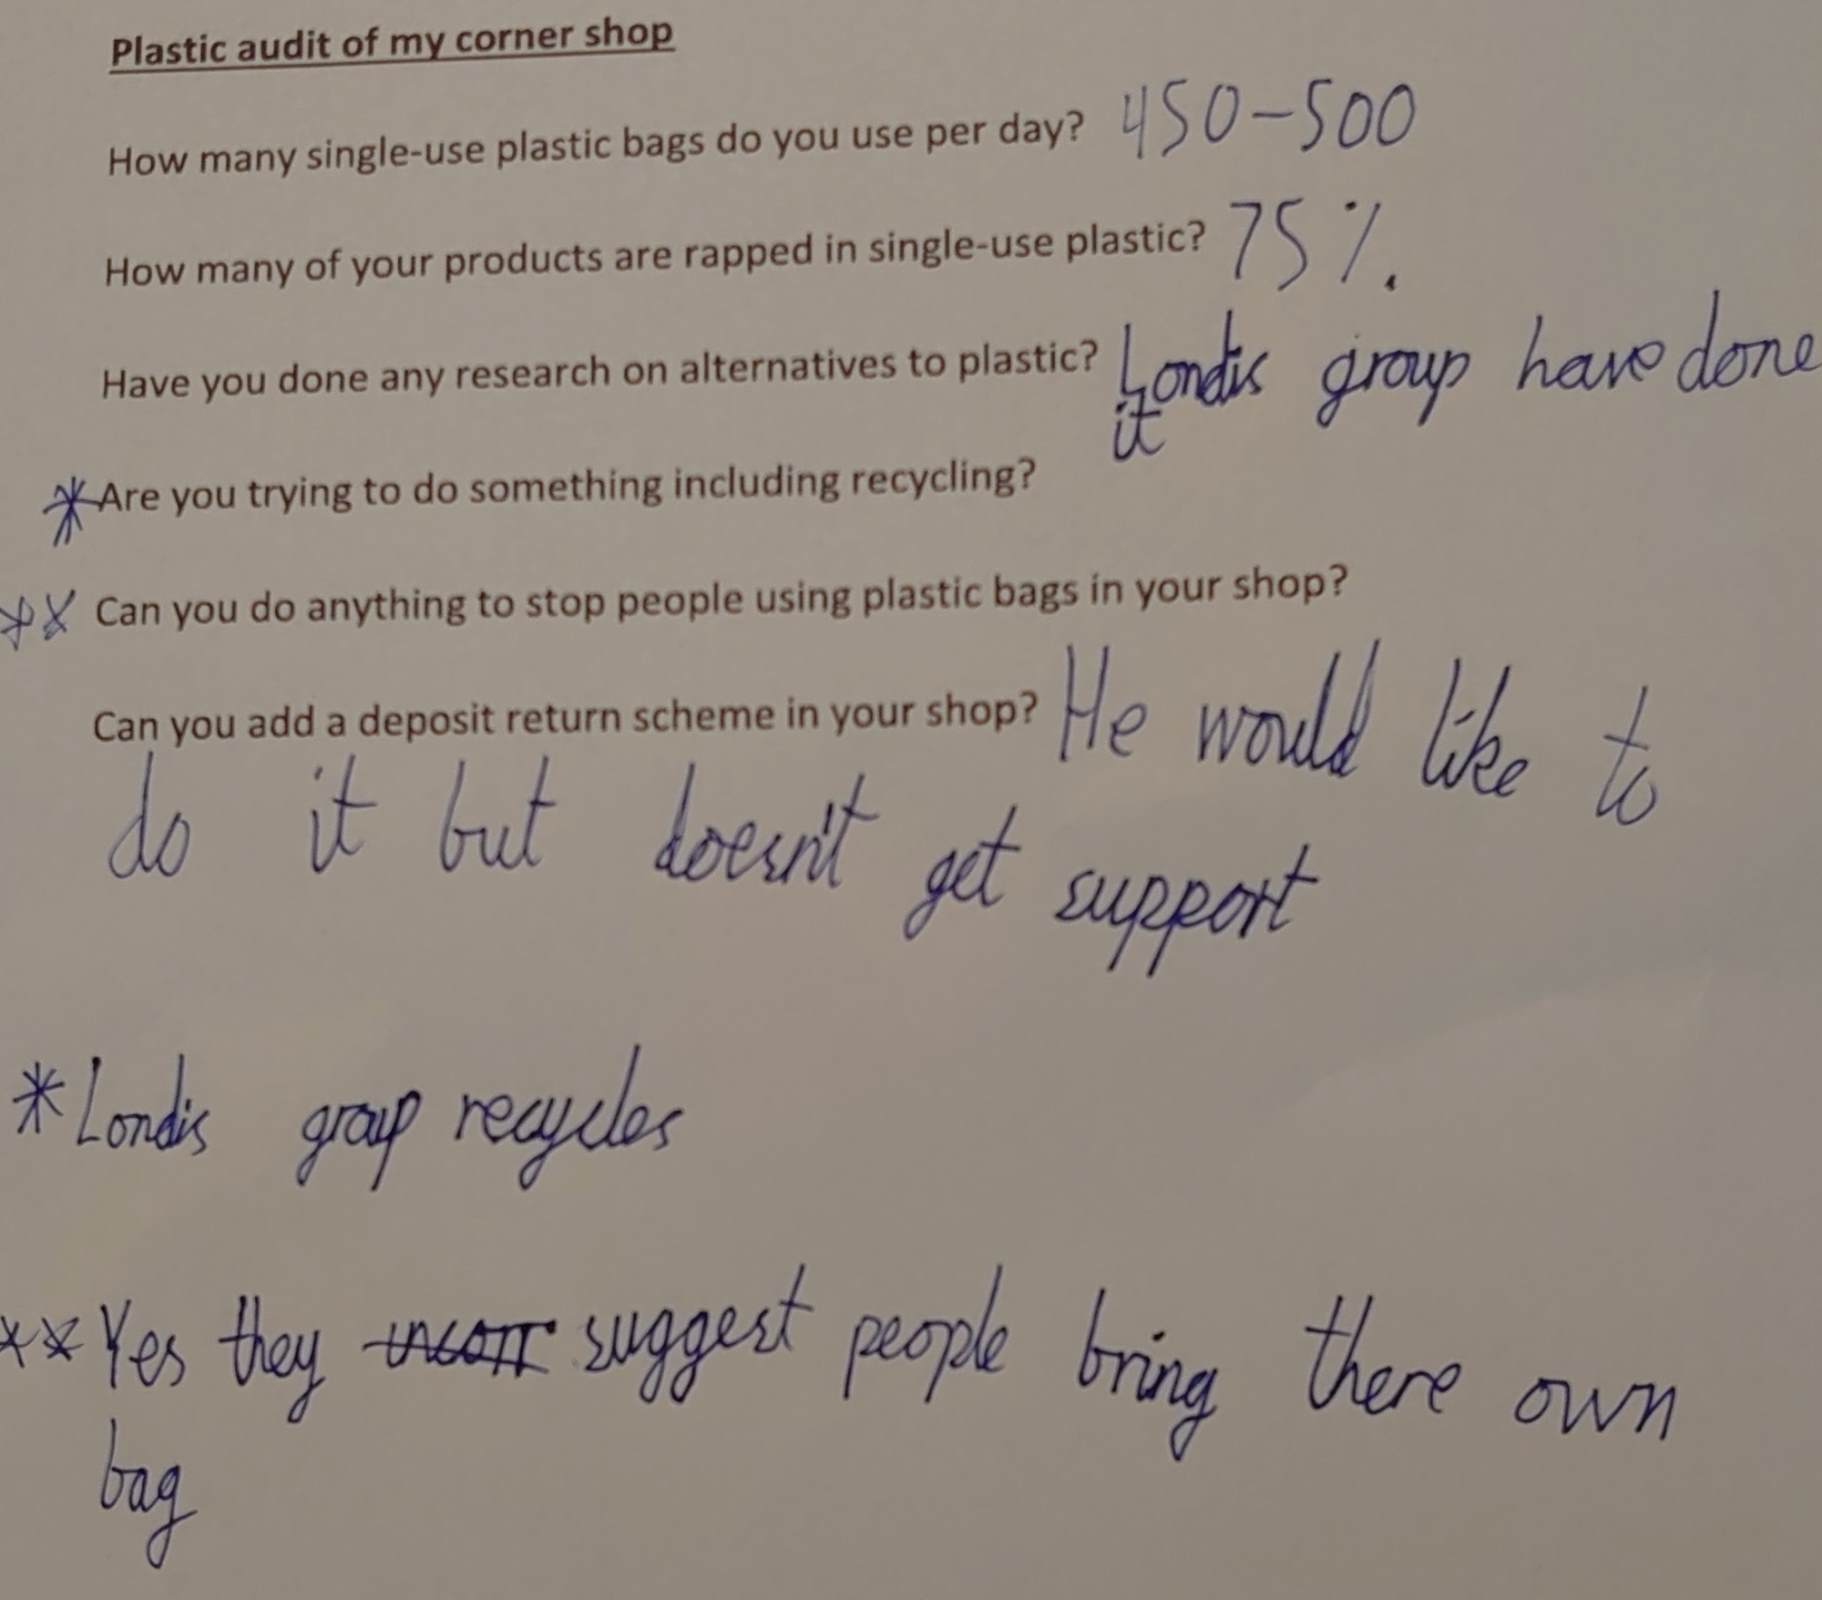 Plastic audit of my corner shop
How many single-use plastic bags do you use per day? 450-500
How many of your products are rapped in single-use plastic? 75%.
Have you done any research on alternatives to plastic? Londis group have done
it
*Are you trying to do something including recycling?
** Can you do anything to stop people using plastic bags in your shop?
Can you add a deposit return scheme in your shop? He would like to
do it but doesn't get support
*Londis group recycles
**Yes they suggest people bring there own
bag